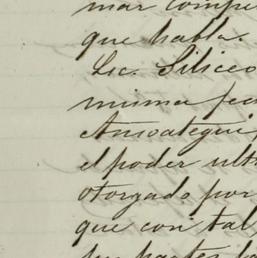 mar compe
que habla.
Lic. Siliceo
misma fec
Ansoategui,
el poder ult
otorgado por
que con tal
su partes la